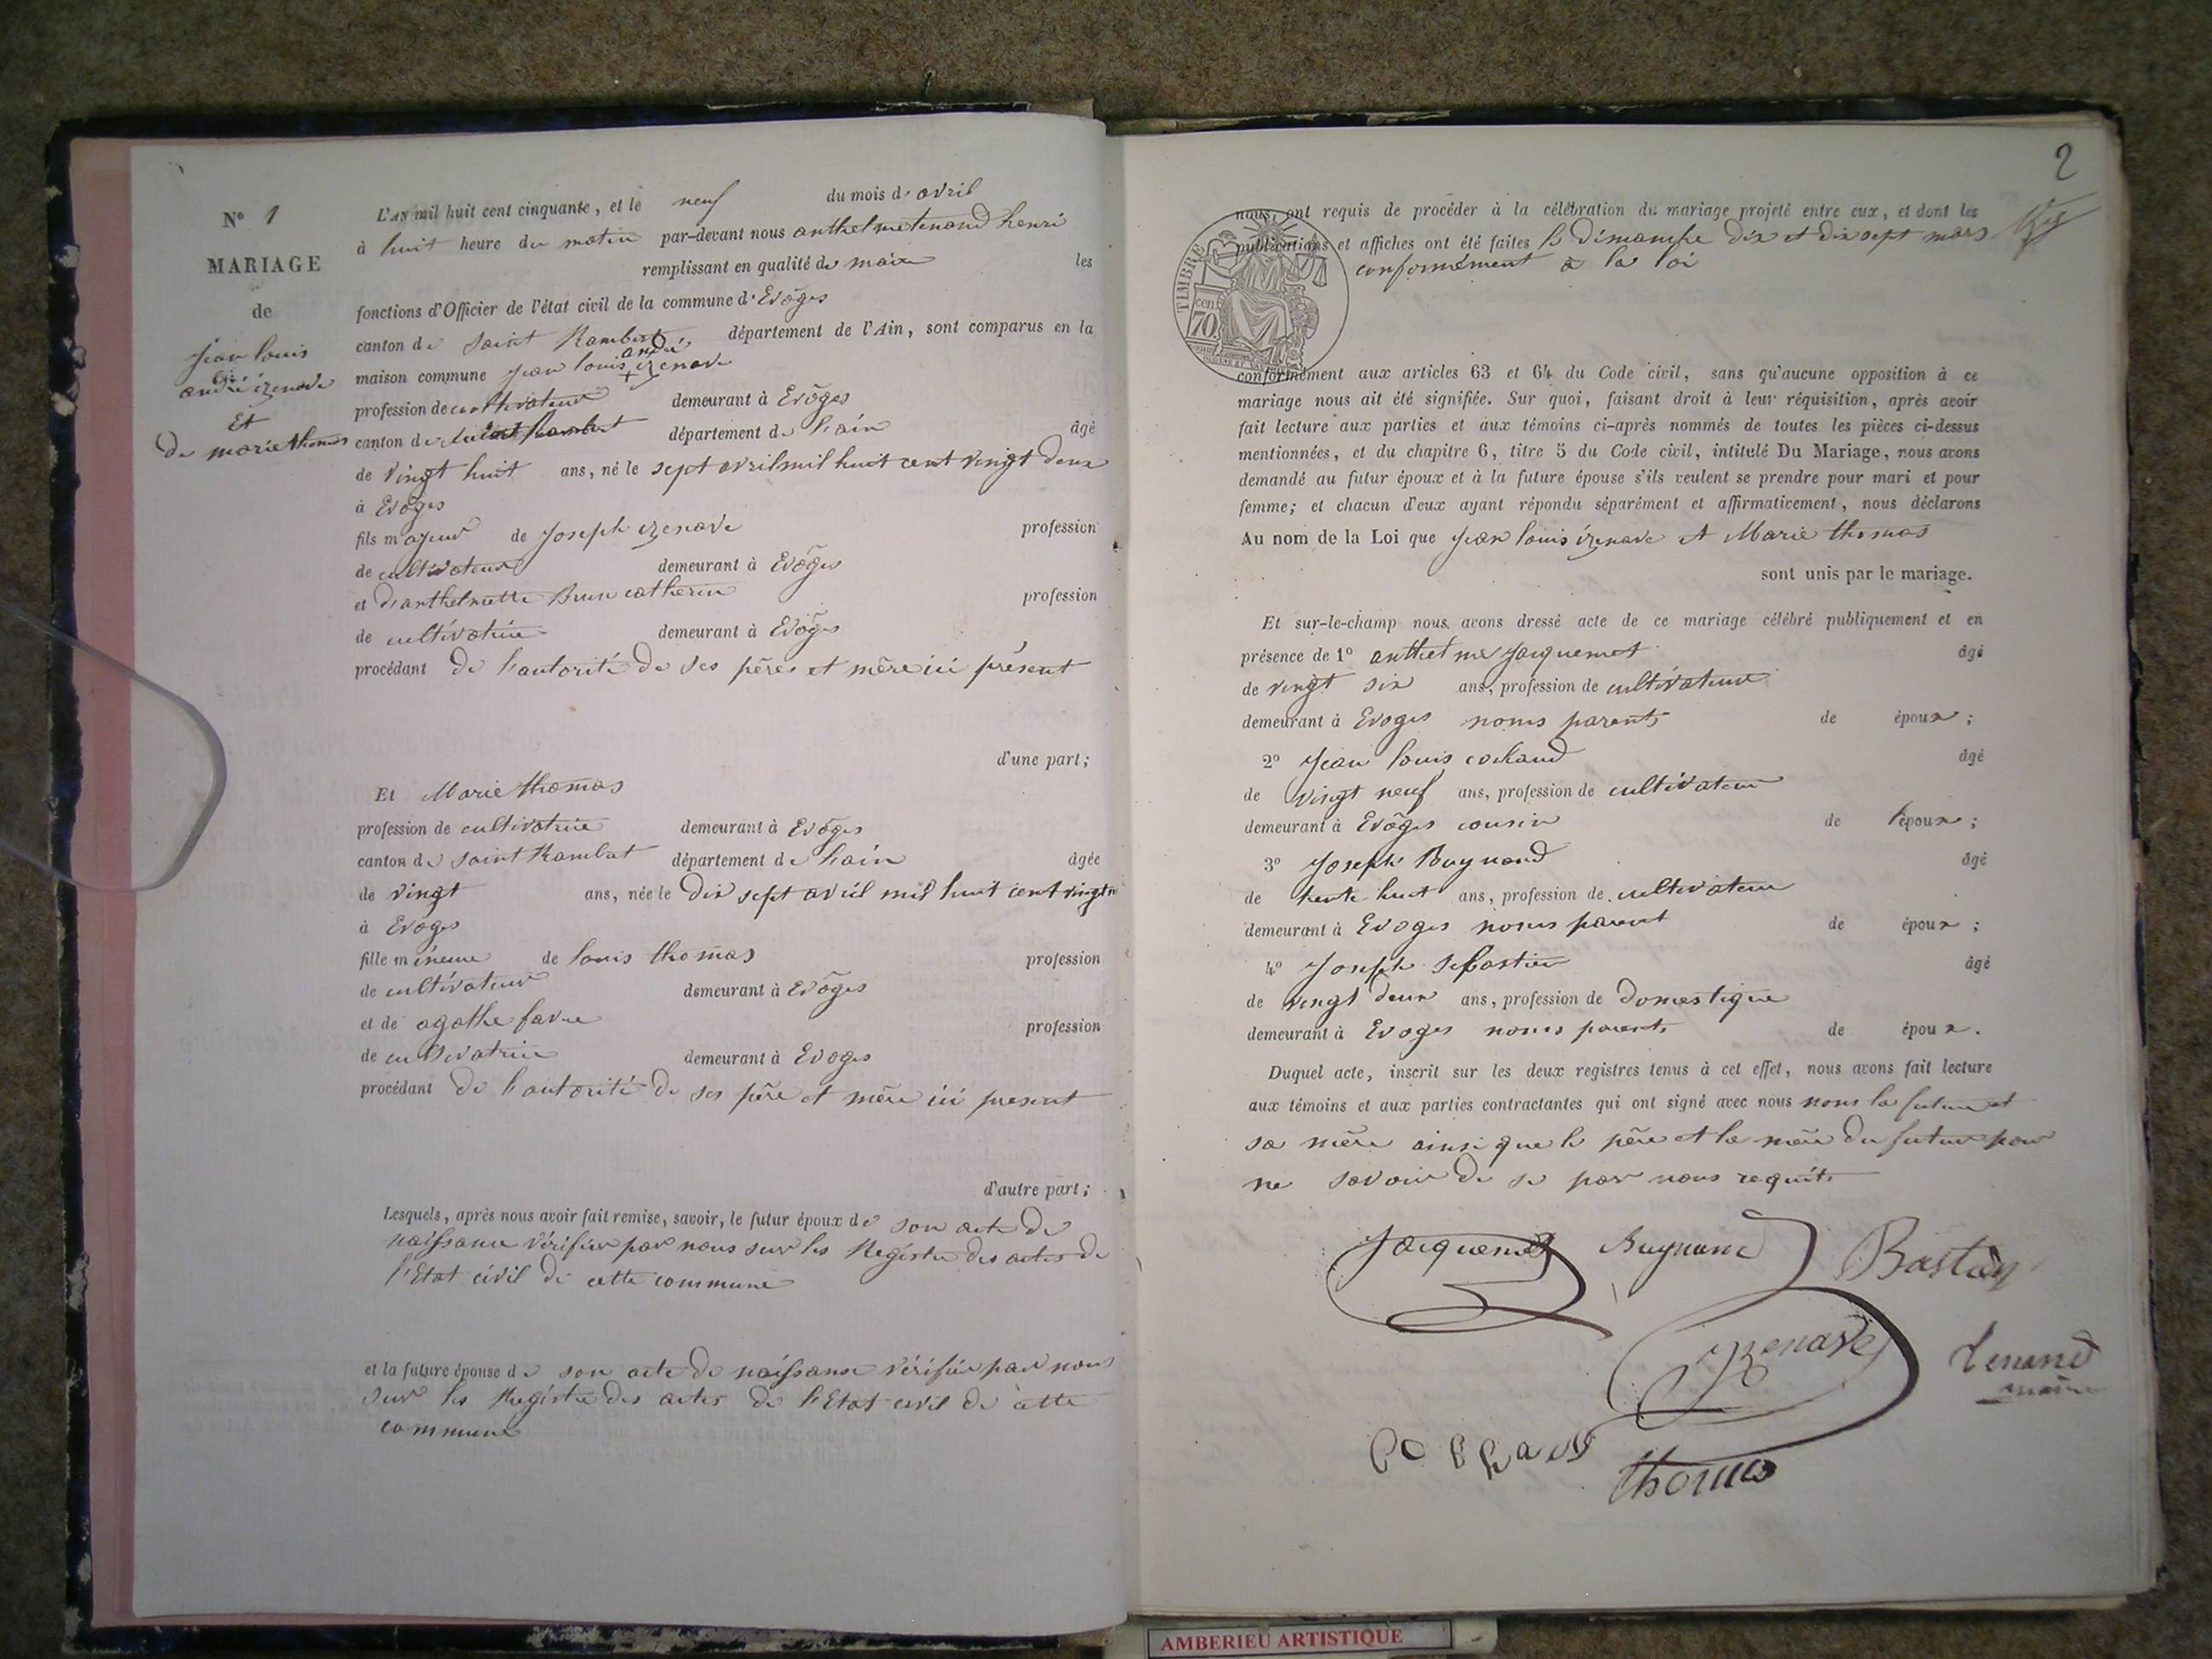 N° 1
MARIAGE
de
jean louis
andré izenave
Et
de marie thomas
L'AN mil huit cent cinquante, et le neuf du mois d' avril
à huit heure du matin par-devant nous anthelme tenand henri
remplissant en qualité de maire les
fonctions d'Officier de l'état civil de la commune d' Evôges
canton de saint Rambert département de l'Ain, sont comparus en la
andré
maison commune jean louis + izenave
profession de cultivateur demeurant à Evôges
canton de saint Rambert département de l'ain âgé
de vingt huit ans, né le sept avril mil huit cent vingt deux
à Evôges
fils majeur de joseph izenave profession
de cultivateur demeurant à Evôges
et d'anthelmette Brun catherin profession
de cultivatrice demeurant à Evôges
procédant de l'autorité de ses pères et mère ici présent
d'une part;
Et Marie thomas
profession de cultivatrice demeurant à Evôges
canton de saint Rambert département de l'ain âgée
de vingt ans, née le dix sept avril mil huit cent vingt n
à Evôges
fille mineure de louis thomas profession
de cultivateur demeurant à Evôges
et de agathe favre profession
de cultivatrice demeurant à Evoges
procédant de l'autorité de ses père et mère ici présent
d'autre part;
Lesquels, après nous avoir fait remise, savoir, le futur époux de son acte de
naissance vérifiée par nous sur les Régistre des actes de
l'Etat civil de cette commune
et la future épouse de son acte de naissance vérifiée par nous
sur les Régistre des actes de l'Etat civil de cette
commune
2
nous, ont requis de procéder à la célébration du mariage projeté entre eux, et dont les
publications et affiches ont été faites le dimanche dix et dix sept mars
conformément a la loi
TIMBRE
70 cen
conformément aux articles 63 et 64 du Code civil, sans qu'aucune opposition à ce
mariage nous ait été signifiée. Sur quoi, faisant droit à leur réquisition, après avoir
fait lecture aux parties et aux témoins ci-après nommés de toutes les pièces ci-dessus
mentionnées, et du chapitre 6, titre 5 du Code civil, intitulé Du Mariage, nous avons
demandé au futur époux et à la future épouse s'ils veulent se prendre pour mari et pour
femme; et chacun d'eux ayant répondu séparément et affirmativement, nous déclarons
Au nom de la Loi que jean louis izenave et Marie thomas
sont unis par le mariage.
Et sur-le-champ nous avons dressé acte de ce mariage célébré publiquement et en
présence de 1° anthelme jacquemet âgé
de vingt six ans, profession de cultivateur
demeurant à Evoges nonis parents de époux;
2° jean louis cochand âgé
de vingt neuf ans, profession de cultivateur
demeurant à Evôges cousin de l'époux;
3° joseph Buynand âgé
de trente huit ans, profession de cultivateur
demeurant à Evoges nonis parent de époux;
4° joseph sebastien âgé
de vingt deux ans, profession de domestique
demeurant à Evoges nonis parents de époux.
Duquel acte, inscrit sur les deux registres tenus à cet effet, nous avons fait lecture
aux témoins et aux parties contractantes qui ont signé avec nous nonis la future et
sa mère ainsi que le père et la mère du futur pour
ne savoir de se par nous requits
jacquemet Buynand Bastien
izenave tenand
maire
thomas
AMBERIEU ARTISTIQUE